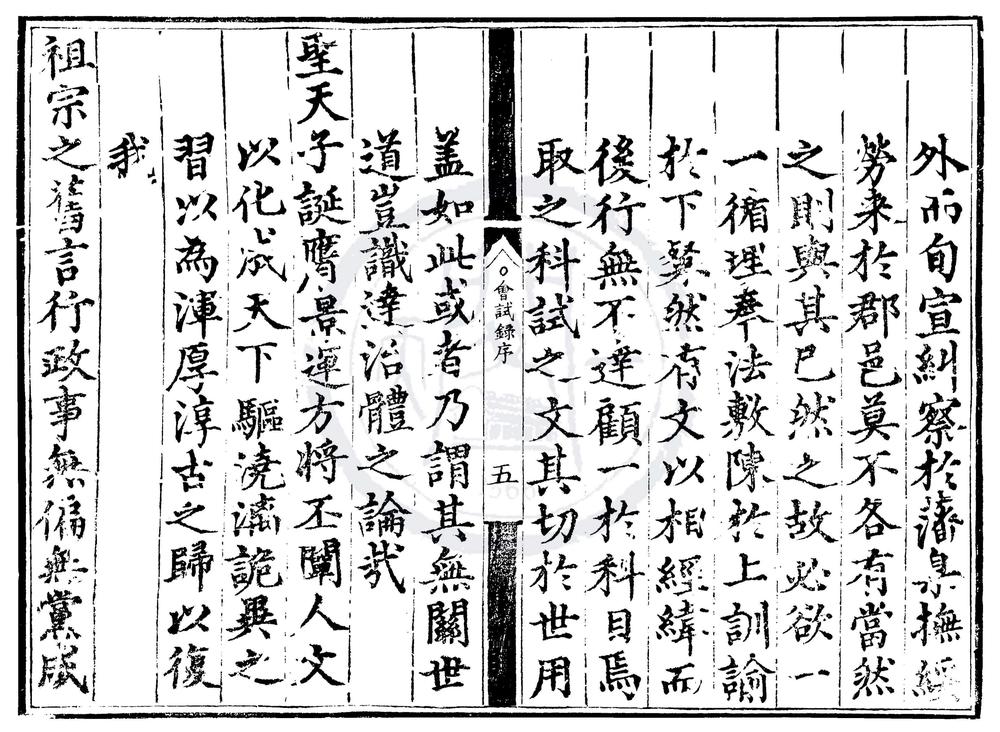 外而旬宣糾察於藩臬撫綏
勞来於郡邑莫不各有當然
之則與其已然之故必欲一
一循理奉法敷陳於上訓諭
於下粲然有文以相經緯而
後行無不達顧一於科目焉
取之科試之文其切於世用
會試錄序
五
蓋如此或者乃謂其無關世
道豈識達治體之論哉
聖天子誕膺景運方將丕闡人文
以化成天下驅澆漓詭異之
習以為渾厚淳古之歸以復
我
祖宗之舊言行政事無偏無黨咸